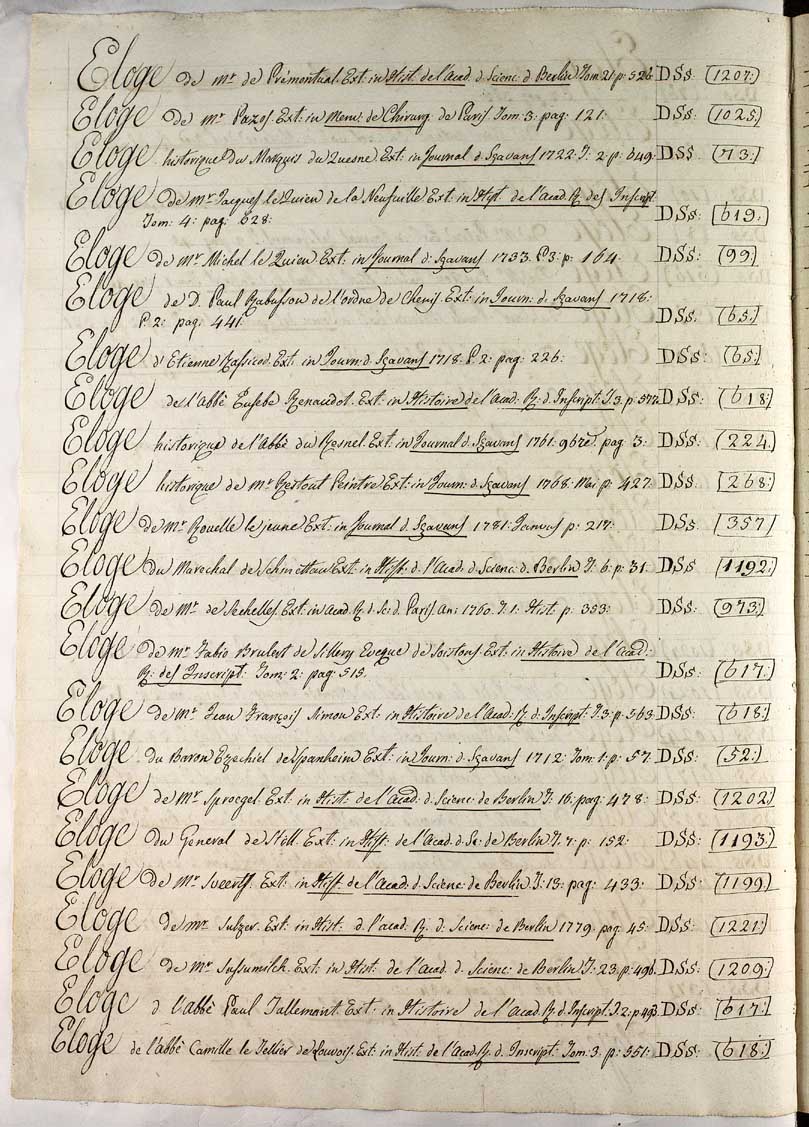 Eloge de Mr de Prémontval. Ext: in Hist. de l'Acad. d. Scienc: d Berlin Tom: 21. p: 526. DSs: (1207:)
Eloge de Mr Pazos. Ext: in Mem: de Chirurg. de Paris Tom: 3: pag: 121: DSs: (1025:)
Eloge historique du Marquis du Quesne. Ext: in Journal d. Sçavans 1722. T: 2: p: 649: DSS (73:)
Eloge de Mr Jacques le Quien de la Neufuille. Ext: in Hist. de l'acad. R. des Inscript.
Tom: 4: pag: 628: DSs: (619:)
Eloge de Mr Michel le Quien Ext: in Journal d: Sçavans 1733. P.3: p: 164. DSs: (99:)
Eloge de D. Paul Rabusson de l'ordre de Cluni. Ext: in Journ: d. Sçavans 1718:
P. 2: pag: 441. DSs: (65:)
Eloge d'Etienne Rassicod. Ext: in Journ: d. Sçavans 1718. P. 2: pag: 226: DSs: (65:)
Eloge de l'Abbé Eusebe Renaudot. Ext: in Histoire de l'Acad: R. d. Inscript: T.3. p. 577. DSs: (618:)
Eloge historique de l'Abbé du Resnel. Ext: in Journal d. Sçavans 1761: 9bre. pag: 3: DSs: (224.)
Eloge historique de Mr Restout Peintre Ext: in Journ: d. Sçavans 1768: Mai p: 427. DSs: (268:)
Eloge de Mr Rouelle le jeune Ext: in Journal d. Sçavans 1781: Janvier p: 217: DSs: (357)
Eloge du Marechal de Schmettau Ext: in Hist: d. l'Acad: d. Scienc: d. Berlin T: 6: p: 31. DSs (1192:)
Eloge de Mr de Sechelles. Ext: in Acad. R. d. Sc: d. Paris An: 1760. T: 1: Hist. p: 353: DSs: (973:)
Eloge de Mr Fabio Brulert de Sillery Eveque de Soissons. Ext: in Histoire de l'Acad:
R: des Inscript: Tom: 2: pag: 515. DSs: (617:)
Eloge de Mr Jean François Simon Ext: in Histoire de l'Acad: R. d. Inscript: T: 3: p: 563 DSs: (618:)
Eloge du Baron Ezechiel de Spanheim Ext: in Journ: d. Sçavans 1712: Tom: 1: p: 57. DSs: (52:)
Eloge de Mr Sproegel. Ext: in Hist: de l'Acad: d. Scienc: de Berlin T: 16. pag: 478: DSs: (1202:)
Eloge du General de Still. Ext: in Hist: de l'Acad. d. Sc: de Berlin T. 7: p: 152: DSs: (1193:)
Eloge de Mr Sveerts. Ext: in Hist de l'Acad: d. Scienc: de Berlin T: 13: pag: 433: DSs: (1199)
Eloge de Mr Sulzer. Ext: in Hist: d. l'acad: R. d. Scienc: de Berlin 1779. pag: 45: DSs: (1221:)
Eloge de Mr Sussumilch. Ext: in Hist: de l'Acad. d. Scienc: de Berlin T: 23. p: 496. DSs: (1209:)
Eloge d l'abbé Paul Tallemant. Ext: in Histoire de l'Acad. R. d. Inscript. T. 2: p: 493. DSs: (617:)
Eloge de l'abbé Camille le Tellier de Louvois. Ext: in Hist. de l'Acad. R. d. Inscript: Tom: 3. p: 551: DSs: (618:)